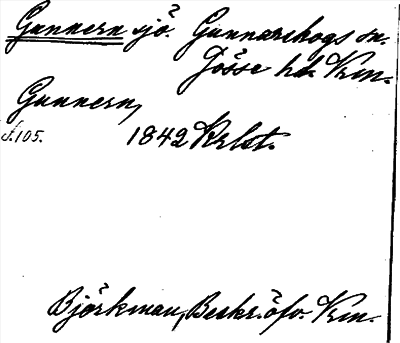 Gunnern sjö. Gunnarskogs sn.
Jösse hd. Vrm.
Gunnern,
s. 105. 1842 Krlst.
Björkman, Beskr. öfv. Vrm.